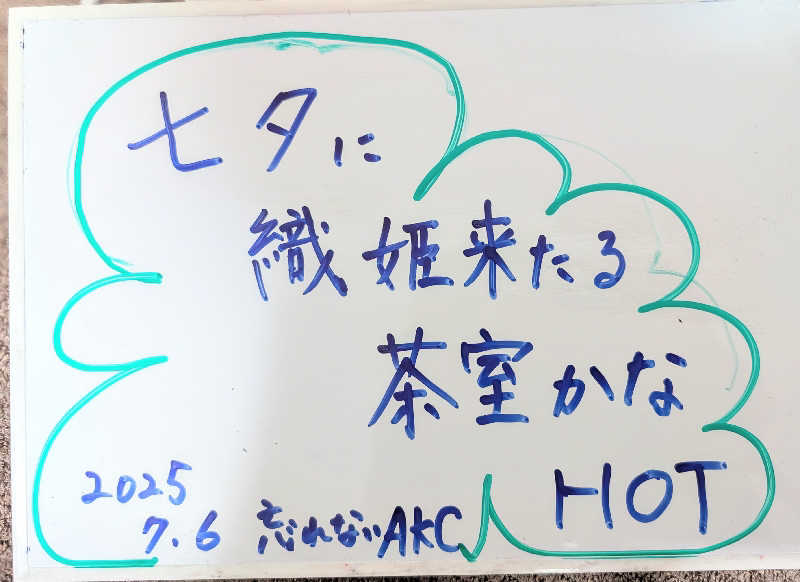 七夕に
織姫来たる
茶室かな
HOT
2025
7.6 忘れないAKC